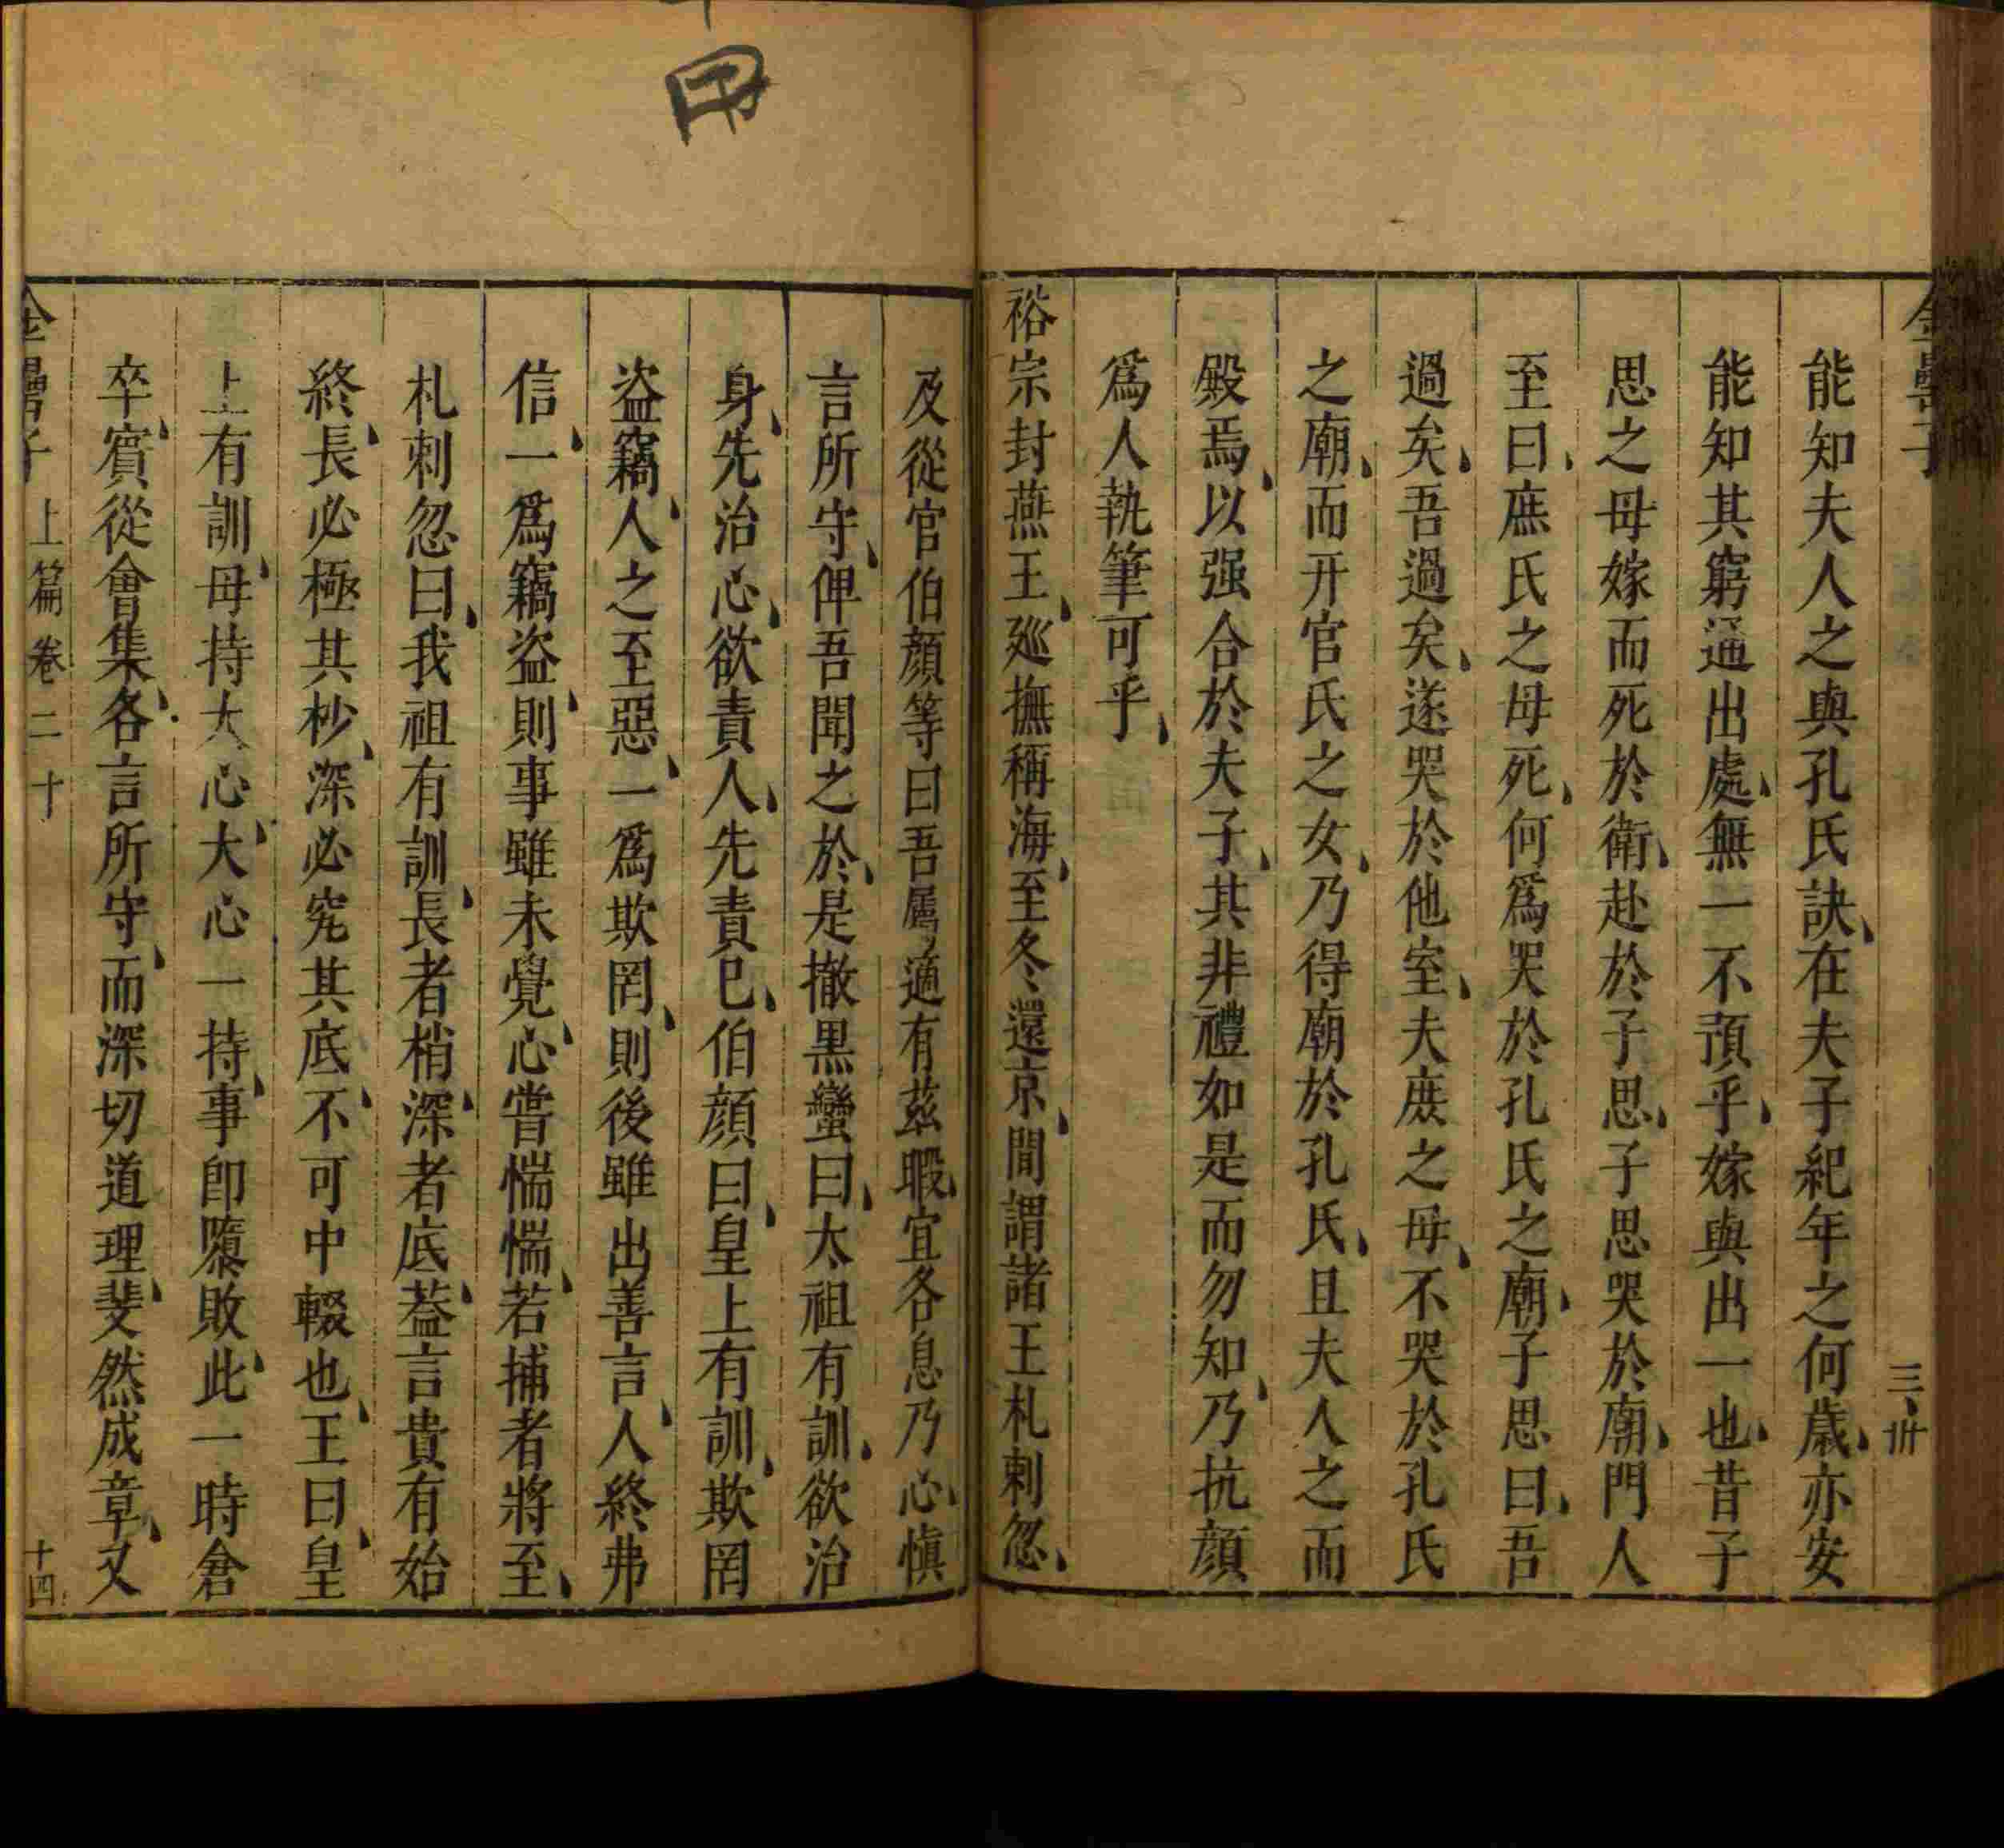 金罍子
三、卅
能知夫人之與孔氏訣、在夫子紀年之何歲、亦安
能知其窮通出處、無一不預乎、嫁與出一也、昔子
思之母嫁而死於衛、赴於子思、子思哭於廟、門人
至曰、庶氏之母死、何爲哭於孔氏之廟、子思曰、吾
過矣、吾過矣、遂哭於他室、夫庶之母、不哭於孔氏
之廟、而幵官氏之女、乃得廟於孔氏、且夫人之而
殿焉、以强合於夫子、其非禮如是而勿知、乃抗顔
爲人執筆可乎、
裕宗封燕王、廵撫稱海、至冬還京、間謂諸王札剌忽、
及從官伯顔等曰吾屬適有茲暇、宜各息乃心、愼
言所守、俾吾聞之、於是撤黒蠻曰、太祖有訓、欲治
身、先治心、欲責人、先責巳、伯顔曰、皇上有訓、欺罔
盗竊、人之至惡、一爲欺罔、則後雖出善言、人終弗
信、一爲竊盗、則事雖未覺、心甞惴惴、若捕者將至、
札剌忽曰、我祖有訓、長者梢、深者底、葢言貴有始
終、長必極其杪、深必究其底、不可中輟也、王曰、皇
上有訓、毋持大心、大心一持、事即隳敗、此一時倉
卒、賓從會集、各言所守、而深切道理、斐然成章、又
金罍子 上篇 卷二十 十四
甲